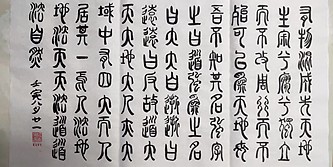 有物混成先天地
生寂兮寥兮獨立
而不改周行而不
殆可以為天地母
吾不知其名強字
之曰道強為之名
曰大大曰逝逝曰
遠遠曰反故道大
天大地大人亦大
域中有四大而人
居其一焉人法地
地法天天法道道
法自然
壬寅八月廿